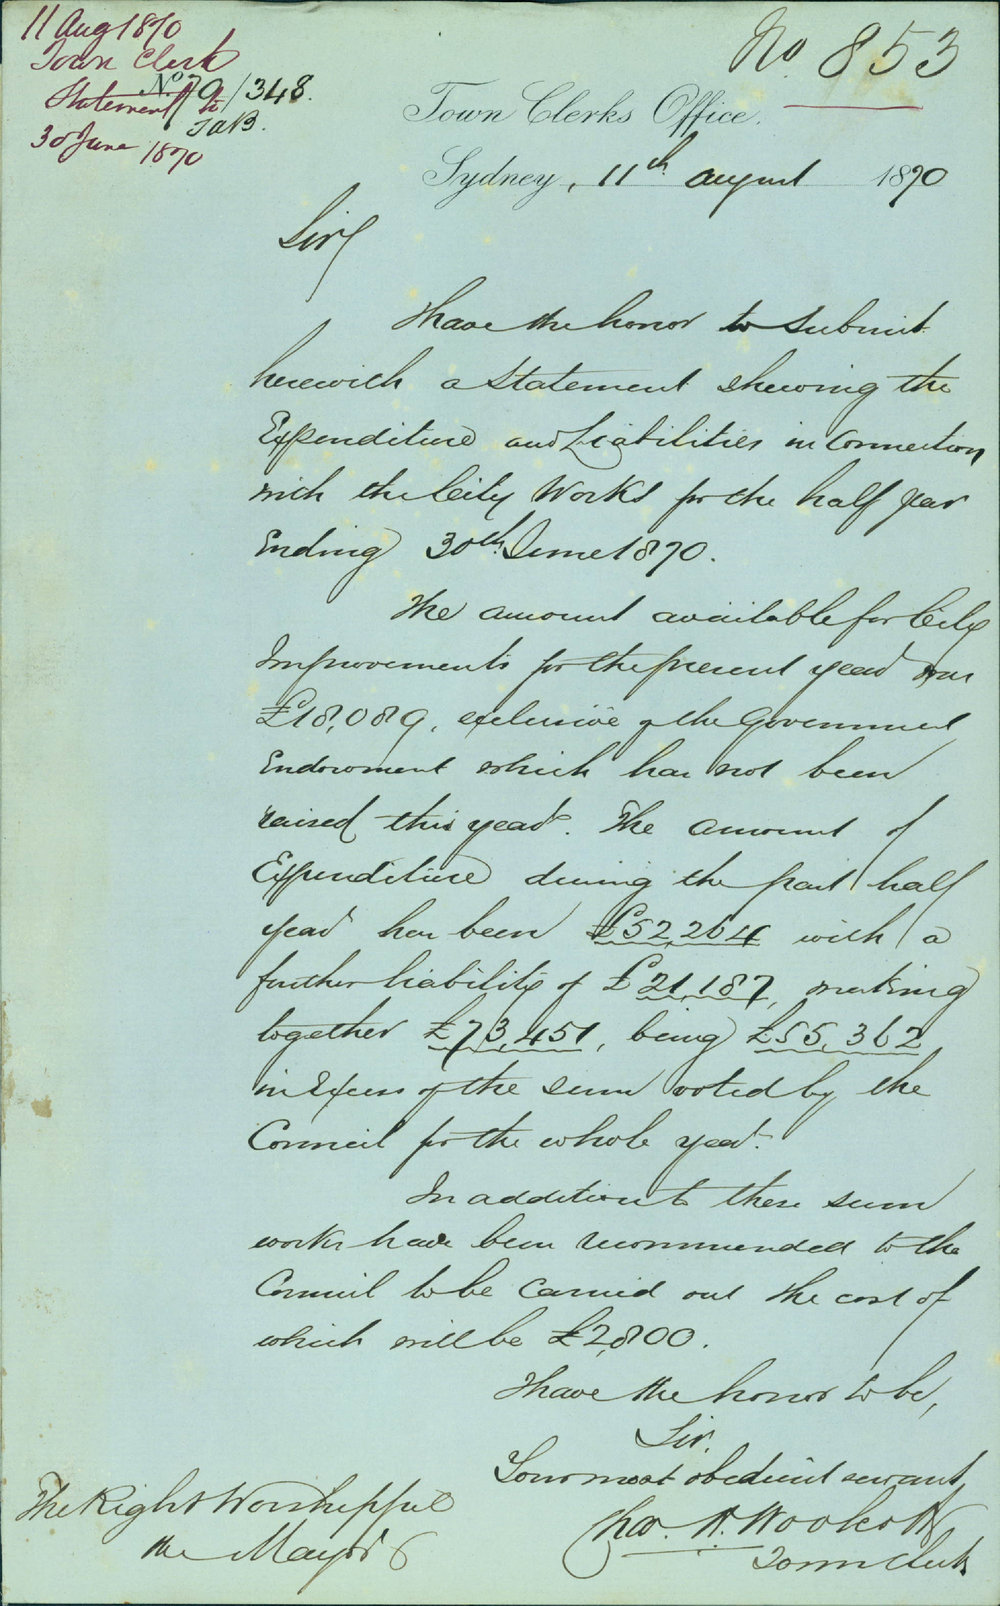 11 Aug 1870
Town Clerk
No 70/348.
Statement to
TaB.
30 June 1870
No. 853
Town Clerks Office.
Sydney, 11th August 1870
Sir
I have the honor to submit
herewith a Statement shewing the
Expenditure and Liabilities in Connection
with the City Works for the half year
Ending 30th June 1870.
The amount available for City
Improvements for the present year was
£18,089, exclusive of the Government
Endowment which has not been
raised this year. The amount of
Expenditure during the past half
year has been £52,264 with a
further liability of £21,187, making
together £73,451, being £55,362
in Excess of the sum voted by the
Council for the whole year.
In addition to these sums
works have been recommended to the
Council to be carried out the cost of
which will be £2,800.
I have the honor to be,
Sir.
Your most obedient servant
Chas. H. Woolcott
Town Clerk
The Right Worshipful
the Mayor